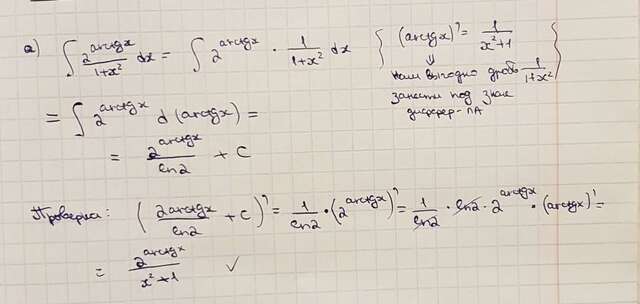 а) ∫ 2^arctgx/(1+x²) dx = ∫ 2^arctgx · 1/(1+x²) dx { (arctgx)' = 1/(x²+1)
⇓
нам выгодно дробь 1/(1+x²) }
занести под знак
дифффер-ла
= ∫ 2^arctgx d(arctgx) =
= 2^arctgx/ln2 + C
Проверка: (2^arctgx/ln2 + C)' = 1/ln2 · (2^arctgx)' = 1/ln2 · ln2 · 2^arctgx · (arctgx)' =
= 2^arctgx/(x²+1) ✓